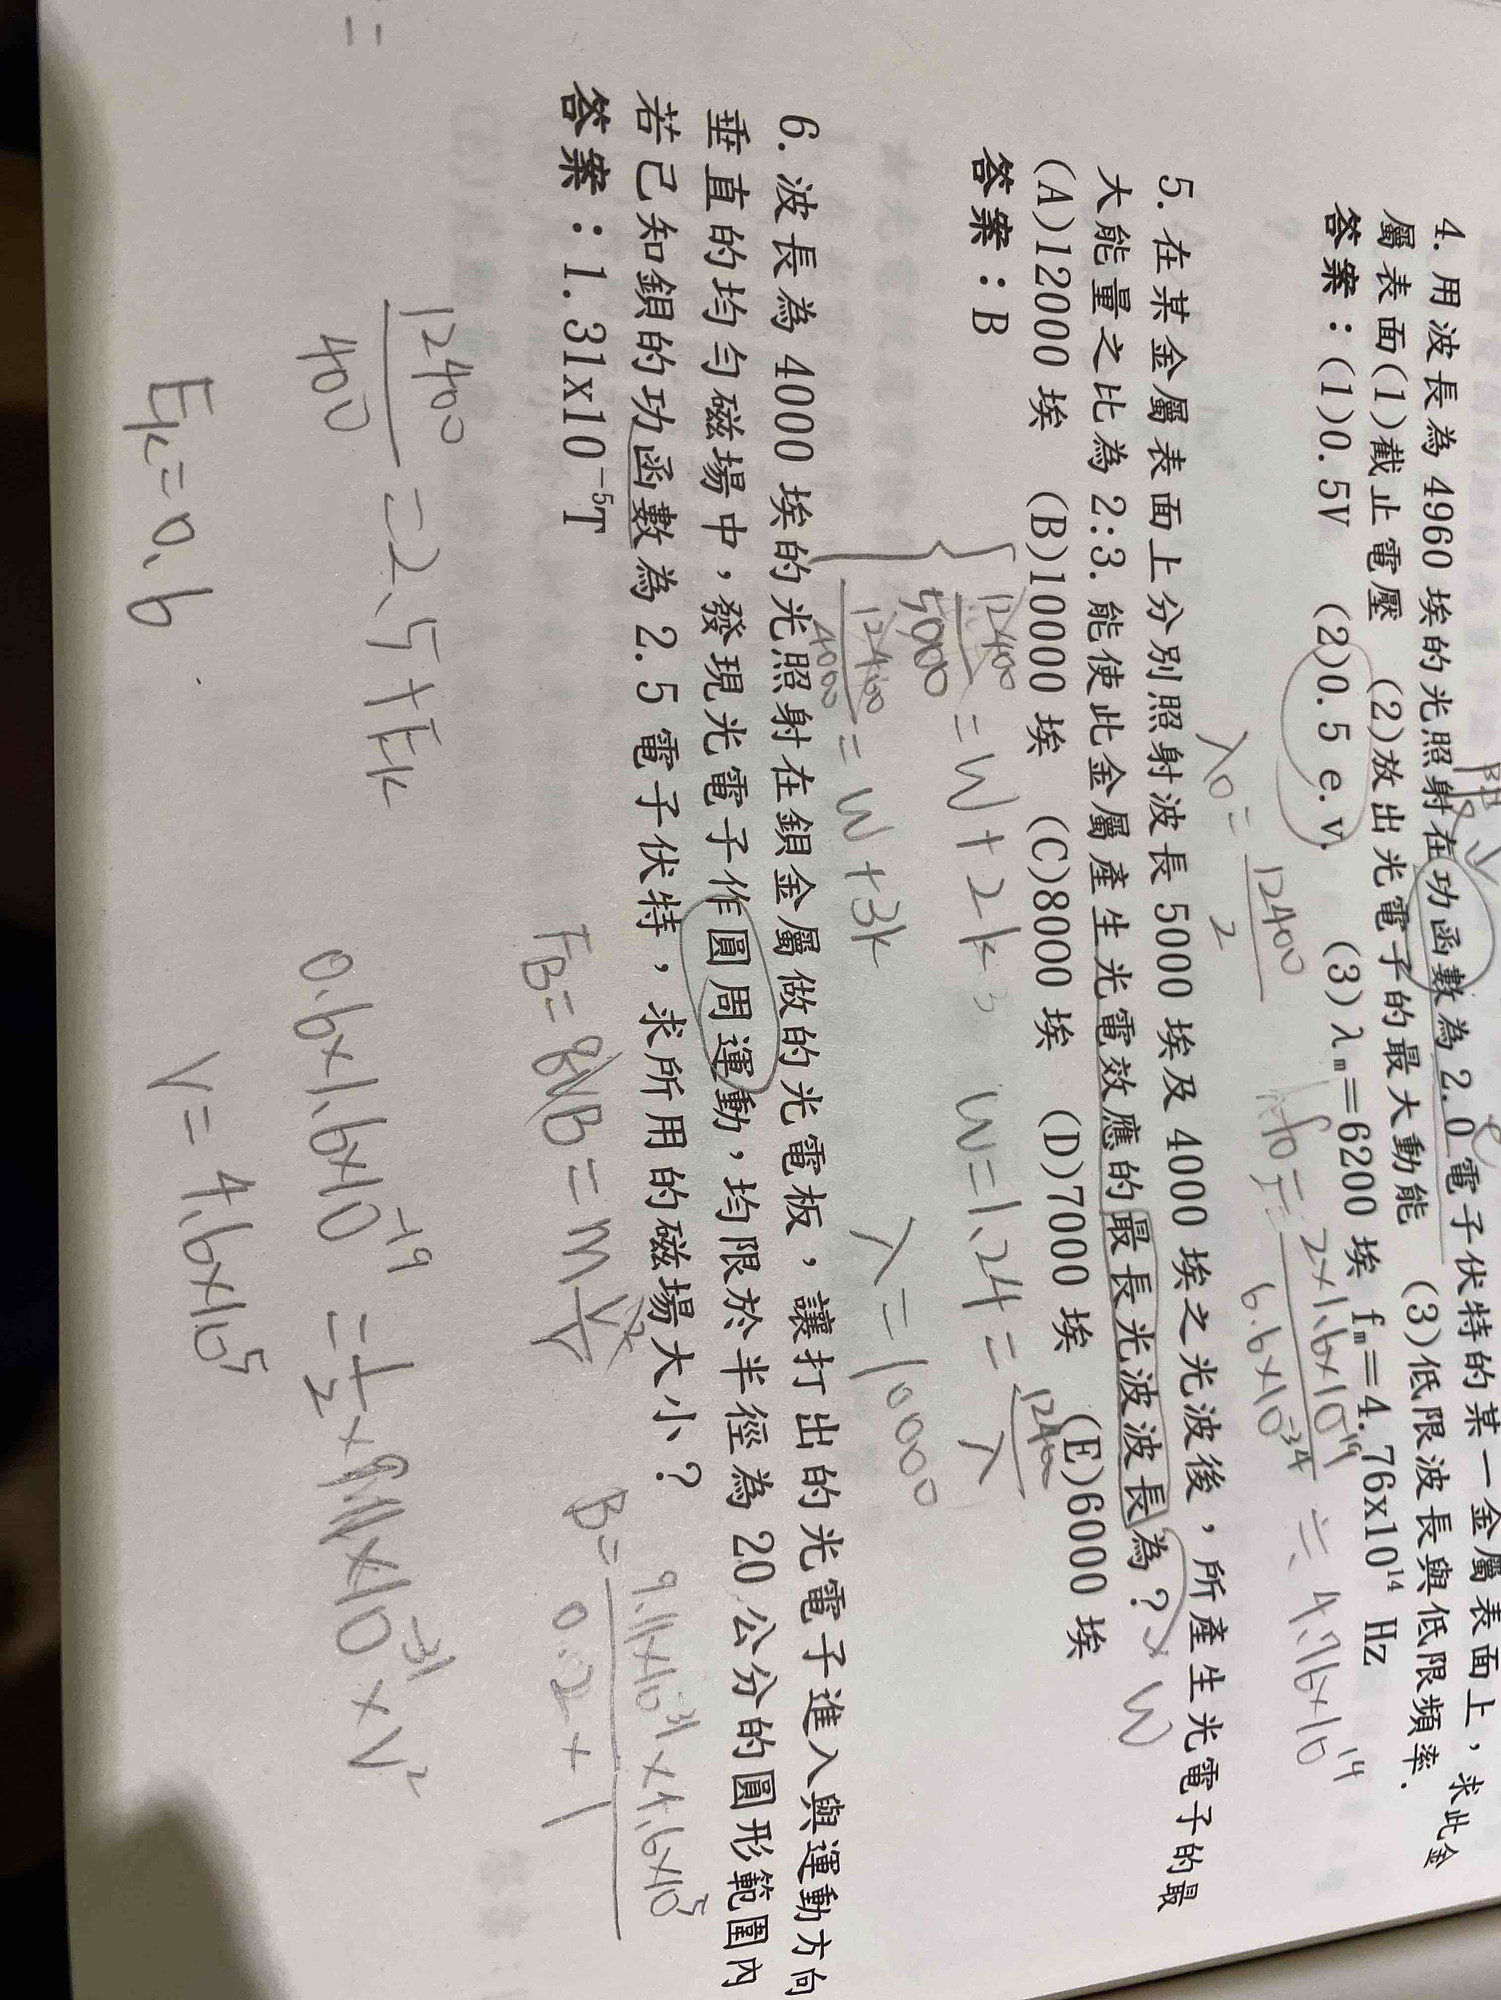 4.用波長為 4960 埃的光照射在功函數為 2.0 電子伏特的某一金屬表面上，求此金
屬表面(1)截止電壓 (2)放出光電子的最大動能 (3)低限波長與低限頻率.
答案：(1)0.5V (2)0.5 e.v. (3)λm=6200 埃 fm=4.76x10¹⁴ Hz
λ0=12400/2
f0=2×1.6×10⁻¹⁹/6.6×10⁻³⁴ ≒ 4.76×10¹⁴
5.在某金屬表面上分別照射波長 5000 埃及 4000 埃之光波後，所產生光電子的最
大能量之比為 2:3.能使此金屬產生光電效應的最長光波波長為？
W
(A)12000 埃 (B)10000 埃 (C)8000 埃 (D)7000 埃 (E)6000 埃
答案：B
12400/5000 = W+2k
W=1.24=12400/λ
12400/4000 = W+3k
λ=10000
6.波長為 4000 埃的光照射在鋇金屬做的光電板，讓打出的光電子進入與運動方向
垂直的均勻磁場中，發現光電子作圓周運動，均限於半徑為 20 公分的圓形範圍內
若已知鋇的功函數為 2.5 電子伏特，求所用的磁場大小？
答案：1.31x10⁻⁵T
FB=qVB=m V²/r
B=9.11×10⁻³¹×4.6×10⁵/0.2×1
12400/400 =2.5+Ek
0.6×1.6×10⁻¹⁹ =1/2×9.11×10⁻³¹×V²
Ek=0.6
V=4.6×10⁵